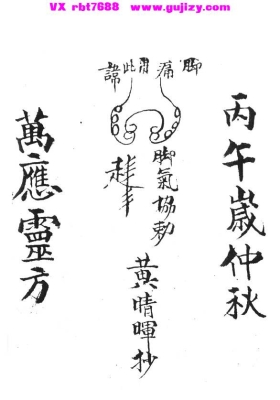 VX rbt7688 www.gujizy.com
丙午歲仲秋
脚痛用此諱
脚氣協勅
黄晴暉抄
萬應靈方